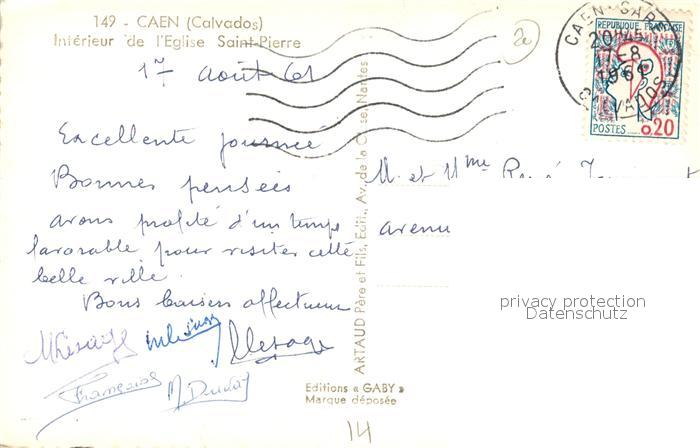 149 - CAEN (Calvados)
Intérieur de l'Eglise Saint-Pierre
1er Août 61
Excellente journée
Bonnes pensées
avons profité d'un temps
favorable pour visiter cette
belle ville.
Bons baisers affectueux
François
ARTAUD Père et Fils, Edit., Av. de la Close, Nantes
Editions « GABY »
Marque déposée
14
a
CAEN-GARE
20H45
1-8
1961
CALVADOS
REPUBLIQUE FRANÇAISE
POSTES
0,20
M. et Mme René
avenu
privacy protection
Datenschutz